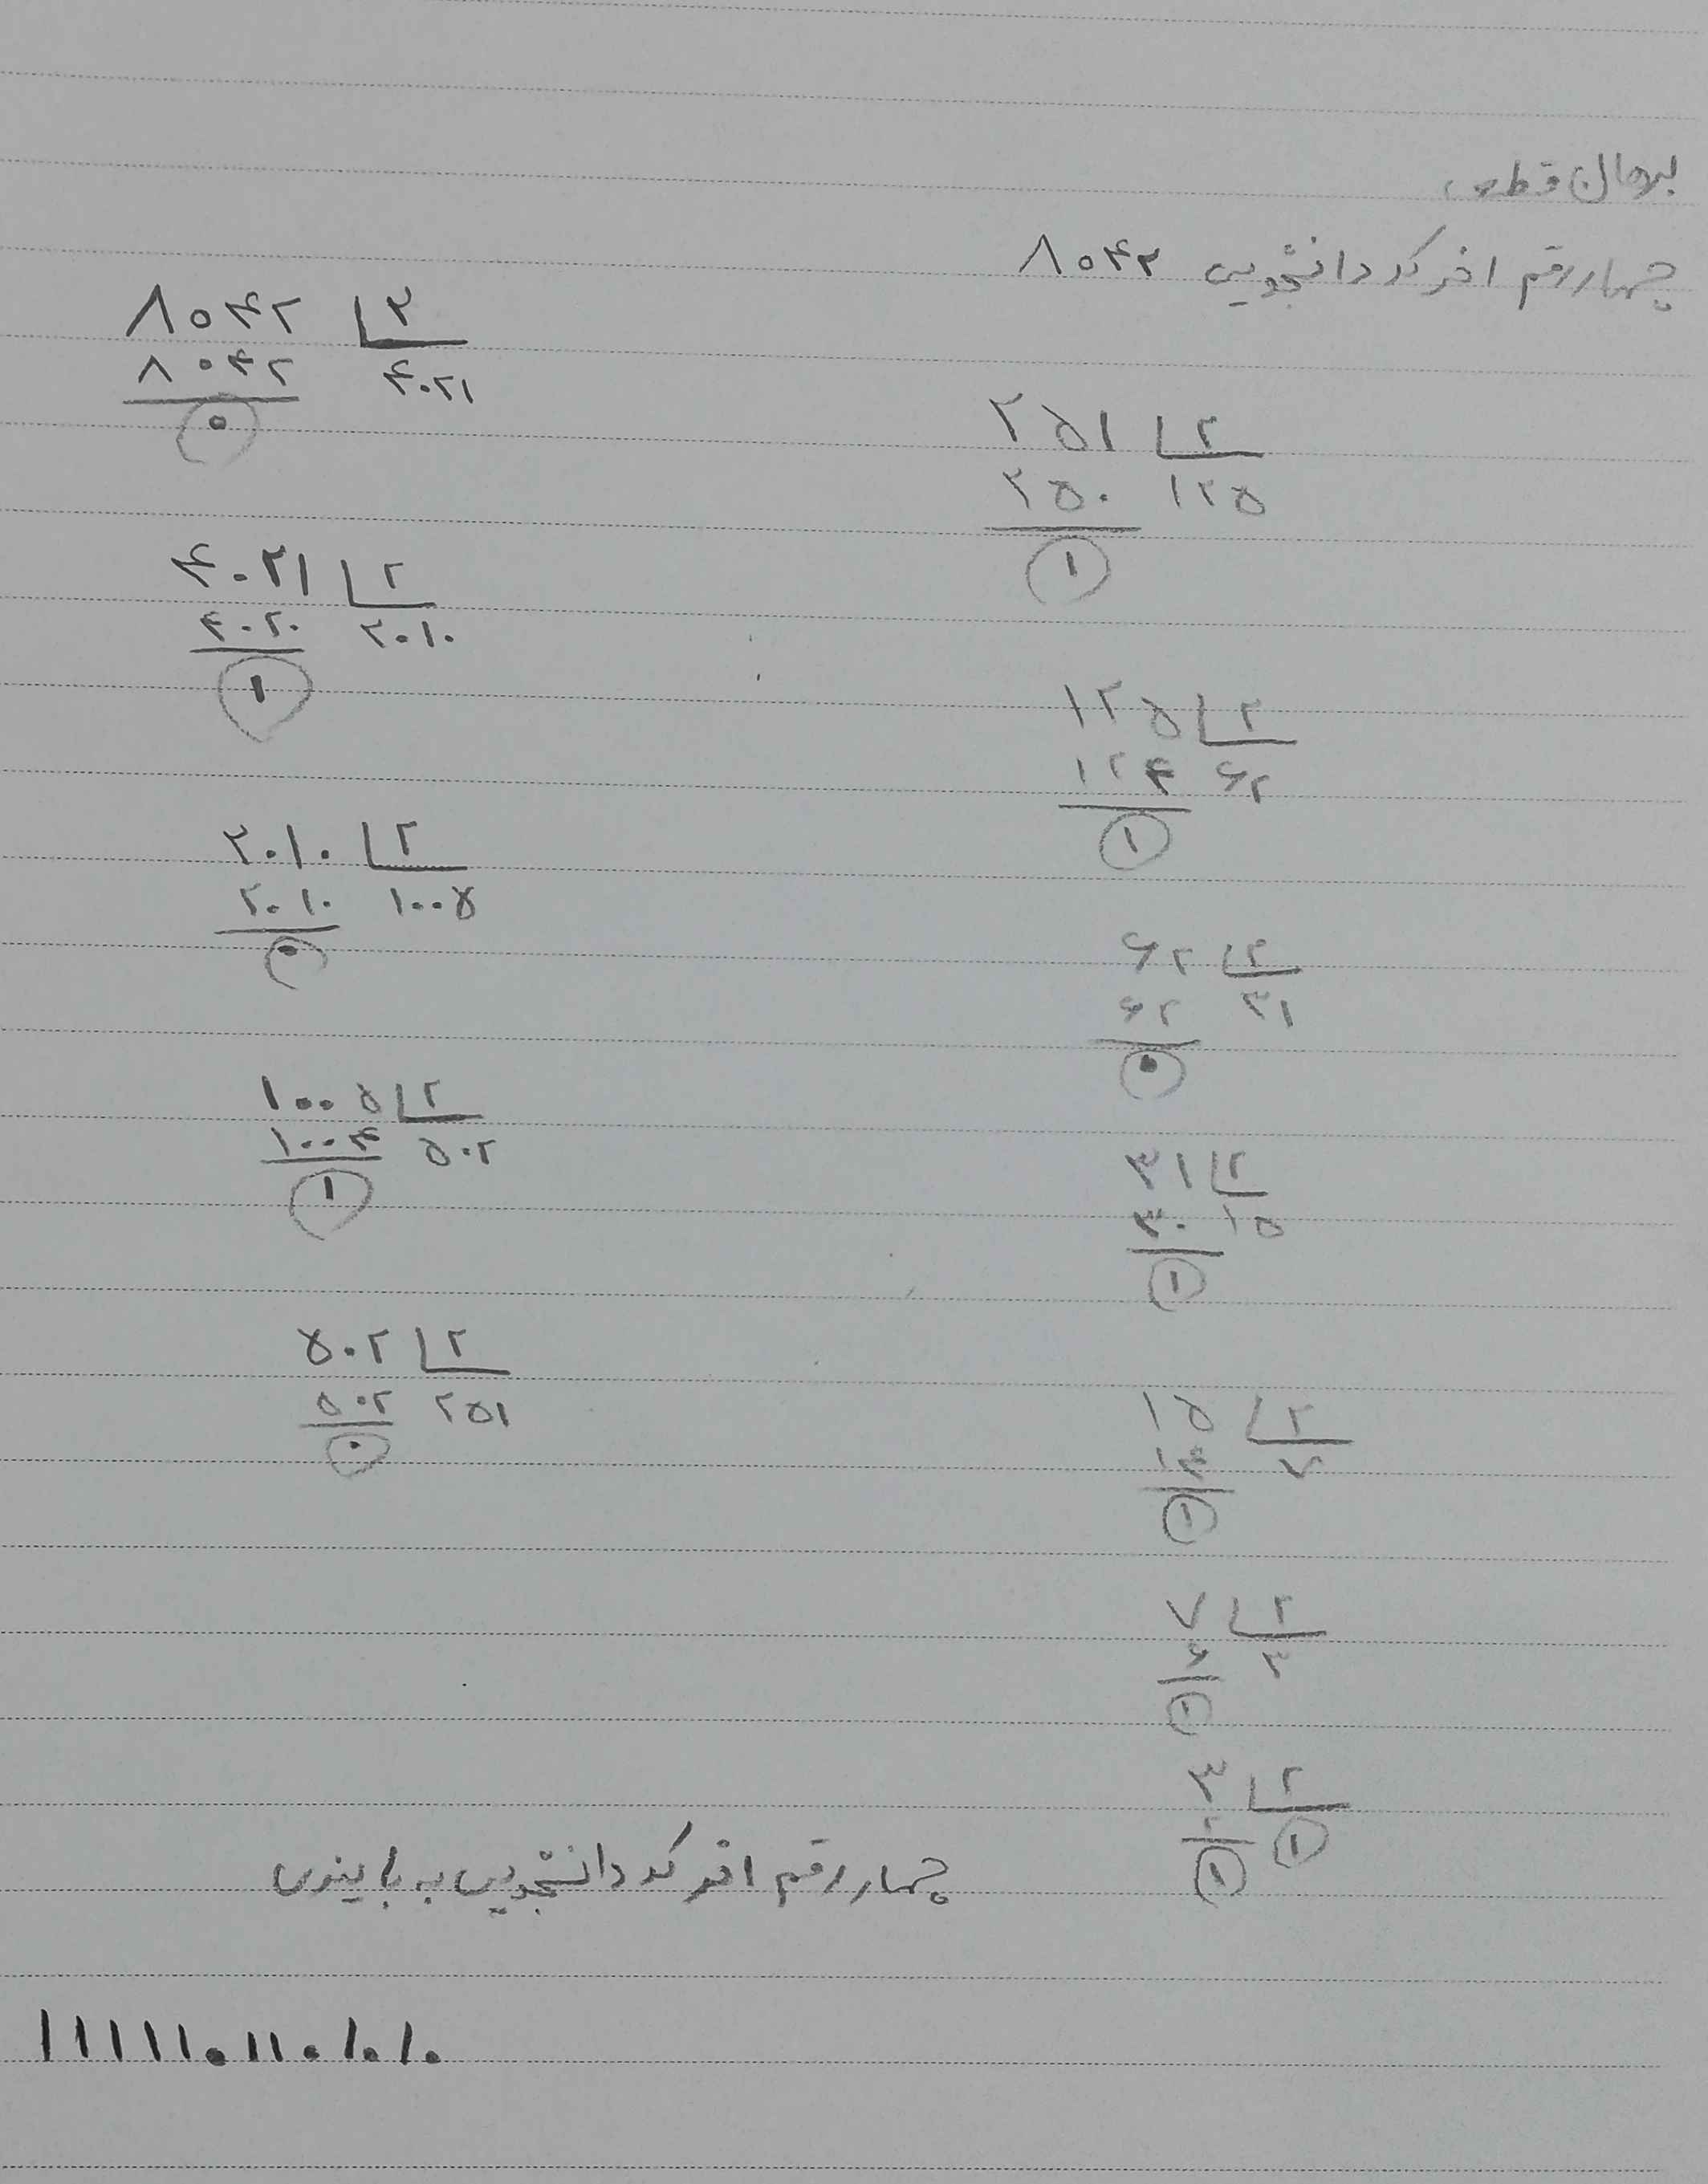 برهان قطبی
چهار رقم اخر کد دانشجویی ۸۰۴۲
۸۰۴۲ ۲
۸۰۴۲ ۴۰۲۱
۰
۴۰۲۱ ۲
۴۰۲۰ ۲۰۱۰
۱
۲۰۱۰ ۲
۲۰۱۰ ۱۰۰۵
۰
۱۰۰۵ ۲
۱۰۰۴ ۵۰۲
۱
۵۰۲ ۲
۵۰۲ ۲۵۱
۰
۲۵۱ ۲
۲۵۰ ۱۲۵
۱
۱۲۵ ۲
۱۲۴ ۶۲
۱
۶۲ ۲
۶۲ ۳۱
۰
۳۱ ۲
۳۰ ۱۵
۱
۱۵ ۲
۱۴ ۷
۱
۷ ۲
۶ ۳
۱
۳ ۲
۲ ۱
۱
چهار رقم اخر کد دانشجویی به باینری
۱۱۱۱۱۰۱۱۰۱۰۱۰